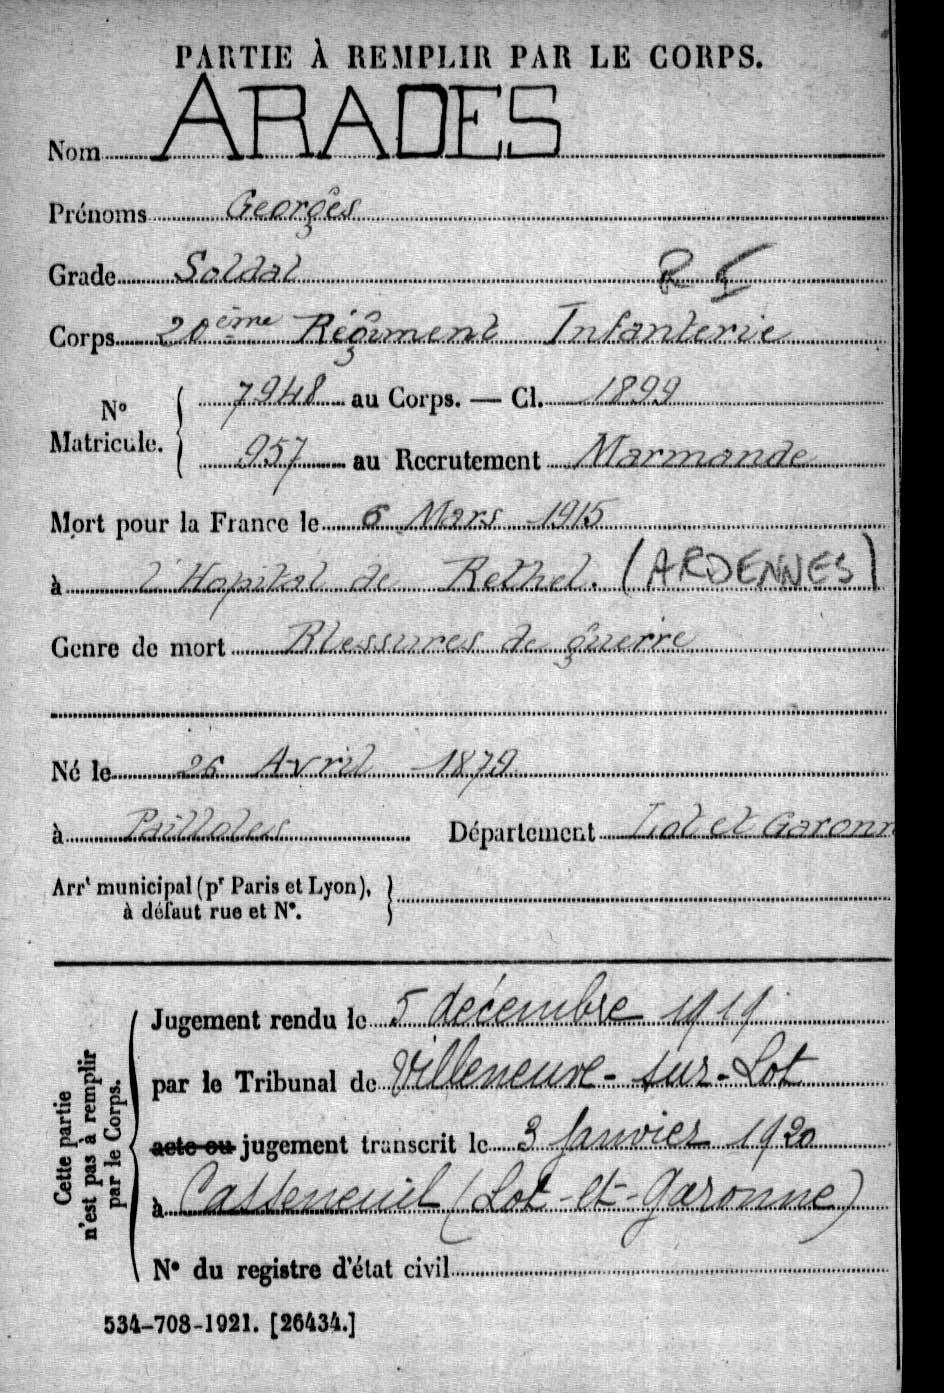 PARTIE À REMPLIR PAR LE CORPS.
Nom ARADES
Prénoms Georges
Grade Soldat R I
Corps 20ème Régiment Infanterie
N° Matricule. 7948 au Corps. — Cl. 1899
957 au Recrutement Marmande
Mort pour la France le 6 Mars 1915
à l'Hopital de Rethel. (ARDENNES)
Genre de mort Blessures de guerre
Né le 26 Avril 1879
à Pailloles Département Lot et Garonn
Arrt municipal (pr Paris et Lyon),
à défaut rue et N°.
Cette partie n'est pas à remplir par le Corps.
Jugement rendu le 5 décembre 1919
par le Tribunal de Villeneuve-sur-Lot
acte ou jugement transcrit le 3 Janvier 1920
à Casseneuil (Lot-et-Garonne)
N° du registre d'état civil
534-708-1921. [26434.]